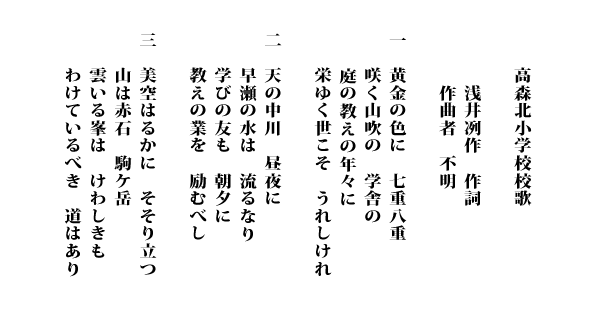 高森北小学校校歌
浅井冽作　作詞
作曲者　不明
一　黄金の色に　七重八重
咲く山吹の　学舎の
庭の教えの年々に
栄ゆく世こそ　うれしけれ
二　天の中川　昼夜に
早瀬の水は　流るなり
学びの友も　朝夕に
教えの業を　励むべし
三　美空はるかに　そそり立つ
山は赤石　駒ケ岳
雲いる峯は　けわしきも
わけているべき　道はあり